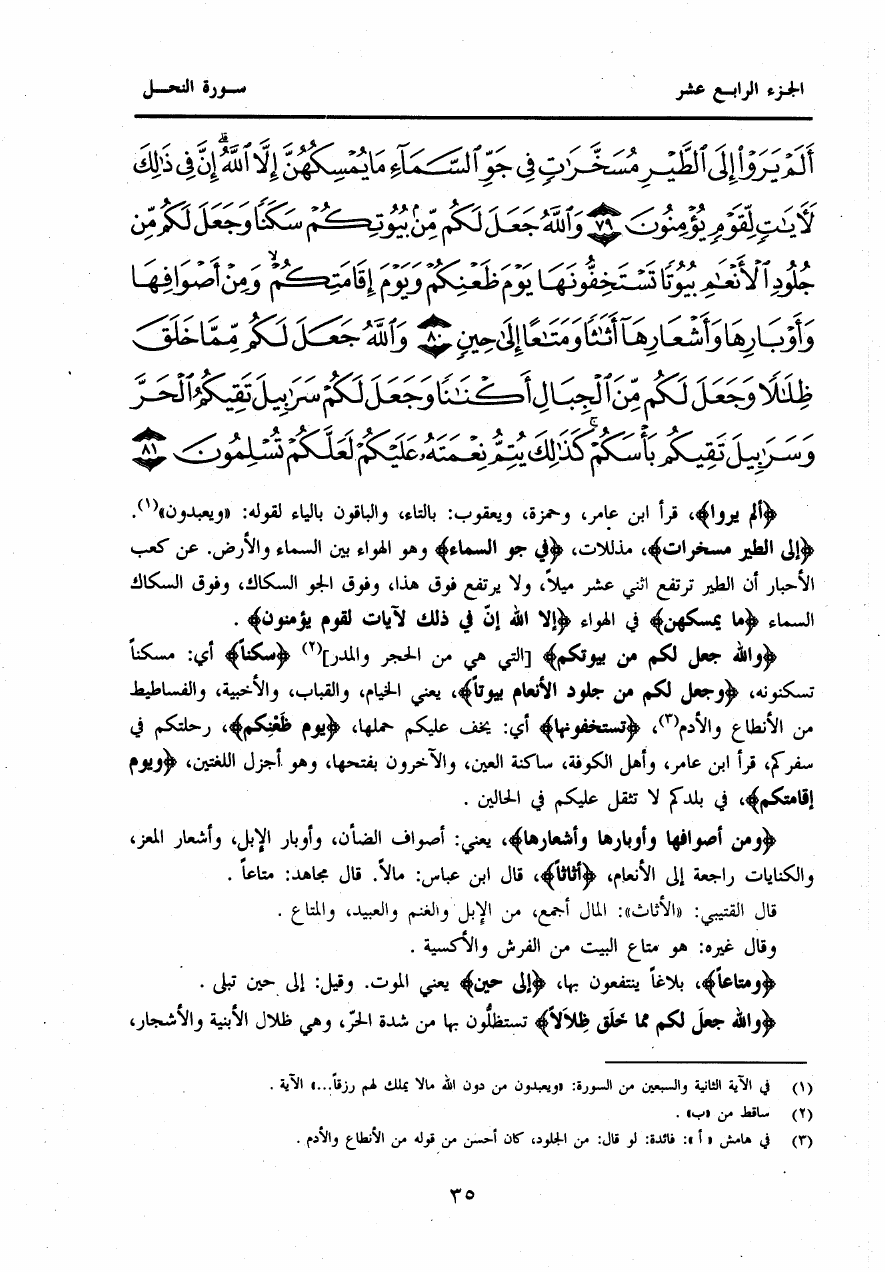 الجزء الرابع عشر
سورة النحل
أَلَمْ يَرَوْا۟ إِلَى ٱلطَّيْرِ مُسَخَّرَٰتٍ فِى جَوِّ ٱلسَّمَآءِ مَا يُمْسِكُهُنَّ إِلَّا ٱللَّهُ ۗ إِنَّ فِى ذَٰلِكَ
لَأَيَٰتٍ لِّقَوْمٍ يُؤْمِنُونَ ٧٩ وَٱللَّهُ جَعَلَ لَكُم مِّنۢ بُيُوتِكُمْ سَكَنًا وَجَعَلَ لَكُم مِّن
جُلُودِ ٱلْأَنْعَٰمِ بُيُوتًا تَسْتَخِفُّونَهَا يَوْمَ ظَعْنِكُمْ وَيَوْمَ إِقَامَتِكُمْ ۙ وَمِنْ أَصْوَافِهَا
وَأَوْبَارِهَا وَأَشْعَارِهَآ أَثَٰثًا وَمَتَٰعًا إِلَىٰ حِينٍ ٨٠ وَٱللَّهُ جَعَلَ لَكُم مِّمَّا خَلَقَ
ظِلَٰلًا وَجَعَلَ لَكُم مِّنَ ٱلْجِبَالِ أَكْنَٰنًا وَجَعَلَ لَكُمْ سَرَٰبِيلَ تَقِيكُمُ ٱلْحَرَّ
وَسَرَٰبِيلَ تَقِيكُم بَأْسَكُمْ ۚ كَذَٰلِكَ يُتِمُّ نِعْمَتَهُۥ عَلَيْكُمْ لَعَلَّكُمْ تُسْلِمُونَ ٨١
﴿ألم يروا﴾، قرأ ابن عامر، وحمزة، ويعقوب: بالتاء، والباقون بالياء لقوله: «ويعبدون»(١).
﴿إلى الطير مسخرات﴾، مذللات، ﴿في جو السماء﴾ وهو الهواء بين السماء والأرض. عن كعب
الأحبار أن الطير ترتفع اثني عشر ميلاً، ولا يرتفع فوق هذا، وفوق الجو السكاك، وفوق السكاك
السماء ﴿ما يمسكهن﴾ في الهواء ﴿إلا الله إنّ في ذلك لآيات لقوم يؤمنون﴾ .
﴿والله جعل لكم من بيوتكم﴾ [التي هي من الحجر والمدر](٢) ﴿سكناً﴾ أي: مسكناً
تسكنونه، ﴿وجعل لكم من جلود الأنعام بيوتاً﴾، يعني الخيام، والقباب، والأخبية، والفساطيط
من الأنطاع والأدم(٣)، ﴿تستخفونها﴾ أي: يخف عليكم حملها، ﴿يوم ظَعْنِكم﴾، رحلتكم في
سفركم، قرأ ابن عامر، وأهل الكوفة، ساكنة العين، والآخرون بفتحها، وهو أجزل اللغتين، ﴿ويوم
إقامتكم﴾، في بلدكم لا تثقل عليكم في الحالين .
﴿ومن أصوافها وأوبارها وأشعارها﴾، يعني: أصواف الضأن، وأوبار الإبل، وأشعار المعز،
والكنايات راجعة إلى الأنعام، ﴿أثاثاً﴾، قال ابن عباس: مالاً. قال مجاهد: متاعاً .
قال القتيبي: «الأثاث»: المال أجمع، من الإبل والغنم والعبيد، والمتاع .
وقال غيره: هو متاع البيت من الفرش والأكسية .
﴿ومتاعاً﴾، بلاغاً ينتفعون بها، ﴿إلى حين﴾ يعني الموت. وقيل: إلى حين تبلى .
﴿والله جعلَ لكم مما خَلَق ظِلاَلاً﴾ تستظلُّون بها من شدة الحرّ، وهي ظلال الأبنية والأشجار،
(١) في الآية الثانية والسبعين من السورة: «ويعبدون من دون الله مالا يملك لهم رزقاً...» الآية .
(٢) ساقط من «ب» .
(٣) في هامش «أ»: فائدة: لو قال: من الجلود، كان أحسن من قوله من الأنطاع والأدم .
٣٥